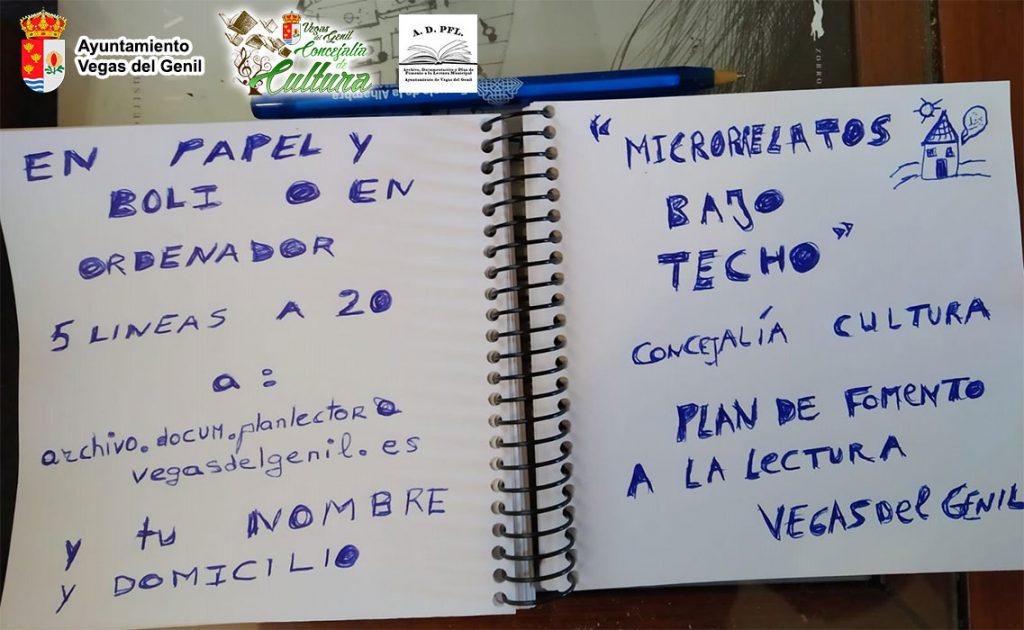 Ayuntamiento
Vegas del Genil
Vegas
del Genil
Concejalía
de
Cultura
A. D. PFL.
Archivo, Documentación y Plan de
Fomento a la Lectura Municipal
Ayuntamiento de Vegas del Genil
ZORRO
EN PAPEL Y
BOLI O EN
ORDENADOR
5 LINEAS A 20
a:
archivo.docum.planlector@
vegasdelgenil.es
y tu NOMBRE
y DOMICILIO
"MICRORRELATOS
BAJO
TECHO"
CONCEJALÍA CULTURA
PLAN DE FOMENTO
A LA LECTURA
VEGAS Del GENIL